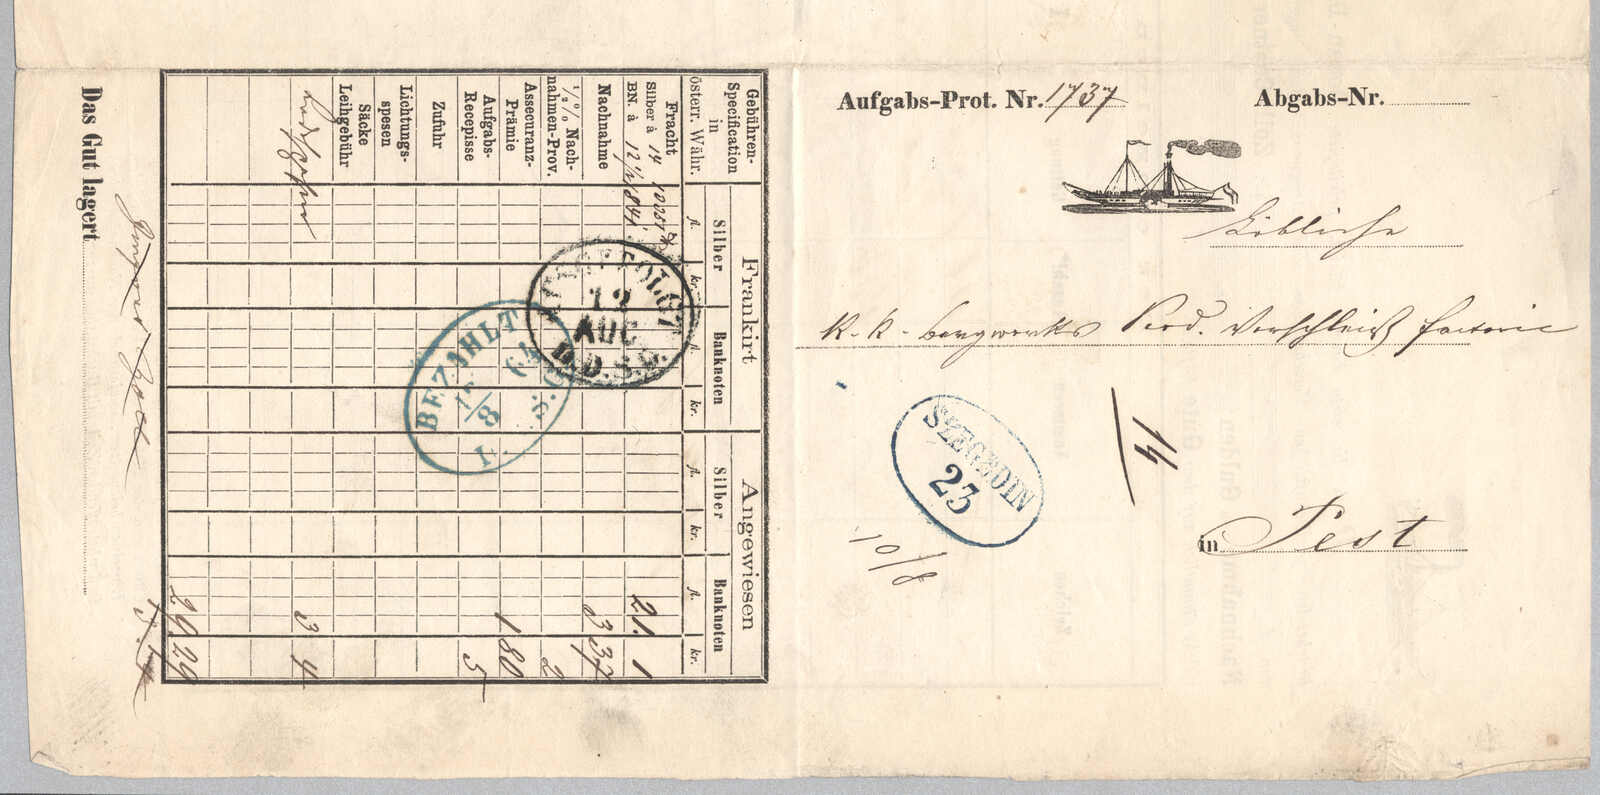 Aufgabs-Prot. Nr. 1737
Abgabs-Nr.
Löbliche
K. K. Bergwerks Prod. Verschleiß Factorie
in Pest
14
SZEGEDIN
23
10/8
Gebühren-Specification
in
österr. Währ.
Frankirt
Angewiesen
Silber
Banknoten
Silber
Banknoten
fl. kr. fl. kr. fl. kr. fl. kr.
Fracht
Silber à 14
BN. à 12 1/2
21. 1
Nachnahme
3 37
1/2 % Nach-
nahmen-Prov.
2
Assecuranz-
Prämie
1 80
Aufgabs-
Recepisse
5
Zufuhr
Lichtungs-
spesen
Säcke
Leihgebühr
3 4
29 29
AUSGEFOLGT
12
AUG
D.D.S.G.
BEZAHLT
8
64
Das Gut lagert